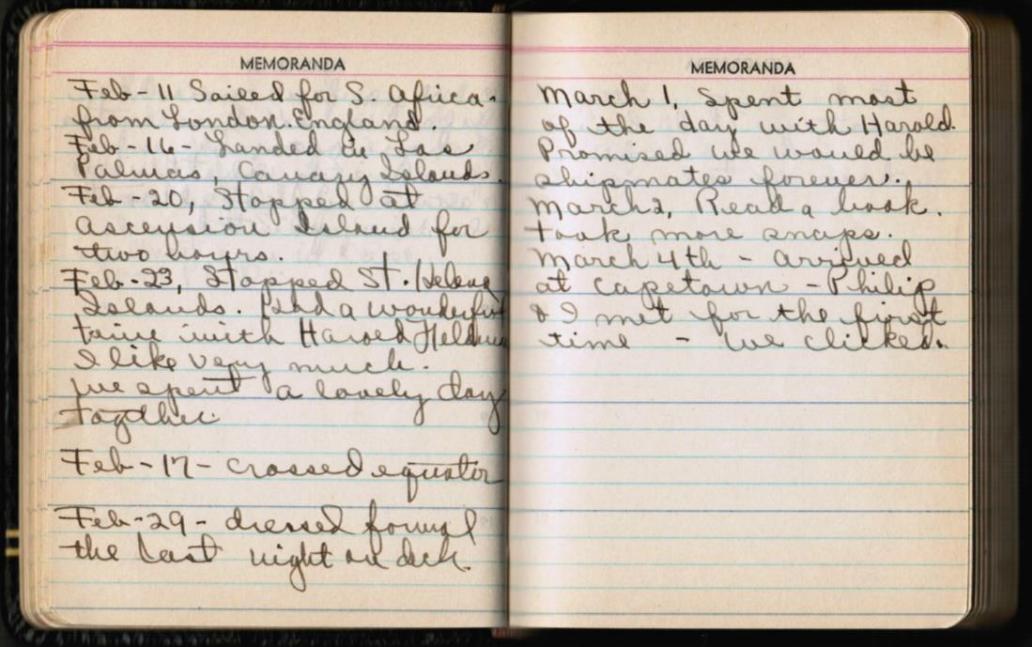 MEMORANDA
Feb-11 Sailed for S. Africa.
from London. England.
Feb-16- Landed in Las
Palmas, Canary Islands.
Feb-20, Stopped at
Ascension Island for
two hours.
Feb-23, Stopped St. Helena
Islands. Had a wonderful
time with Harold
I like very much.
we spent a lovely day
together.
Feb-17- crossed equator
Feb-29- dressed formal
the last night on deck.
MEMORANDA
March 1, Spent most
of the day with Harold.
Promised we would be
shipmates forever.
March 2, Read a book.
Took more snaps.
March 4th - arrived
at Capetown - Philip
& I met for the first
time - we clicked.